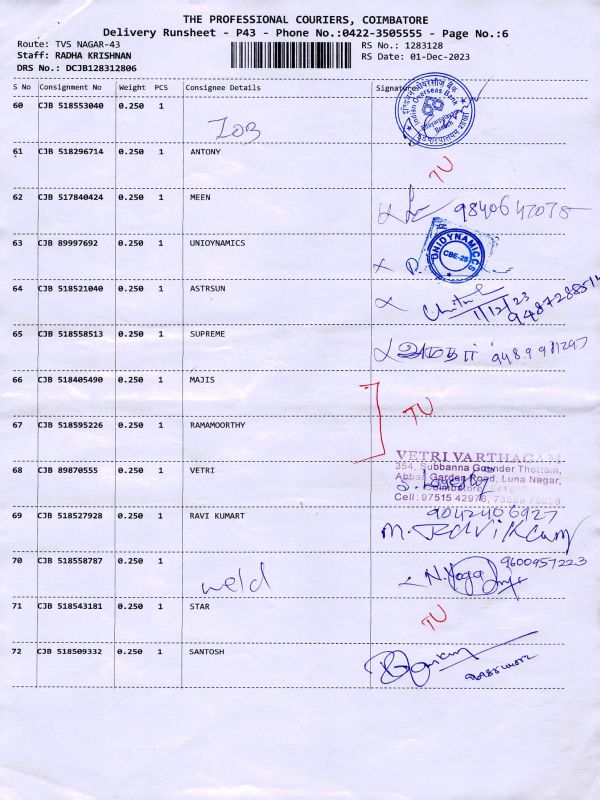 THE PROFESSIONAL COURIERS, COIMBATORE
Delivery Runsheet - P43 - Phone No.:0422-3505555 - Page No.:6
Route: TVS NAGAR-43 RS No.: 1283128
Staff: RADHA KRISHNAN RS Date: 01-Dec-2023
DRS No.: DCJB128312806
S No Consignment No Weight PCS Consignee Details Signature
60 CJB 518553040 0.250 1
IOB
Indian Overseas Bank
Branch
61 CJB 518296714 0.250 1 ANTONY
TU
62 CJB 517840424 0.250 1 MEEN
63 CJB 89997692 0.250 1 UNIDYNAMICS
UNIDYNAMICCS
CBE-25
64 CJB 518521040 0.250 1 ASTRSUN
1/12/23
65 CJB 518558513 0.250 1 SUPREME
66 CJB 518405490 0.250 1 MAJIS
TU
67 CJB 518595226 0.250 1 RAMAMOORTHY
VETRI VARTHAGAM
354, Subbanna Gounder Thottam,
Abbas Garden Road, Luna Nagar,
Coimbatore
Cell: 97515 42976,
68 CJB 89870555 0.250 1 VETRI
69 CJB 518527928 0.250 1 RAVI KUMART
9042406927
M. Ravikumar
70 CJB 518558787 0.250 1
weld
N. Yoga 9600957223
71 CJB 518543181 0.250 1 STAR
TU
72 CJB 518509332 0.250 1 SANTOSH